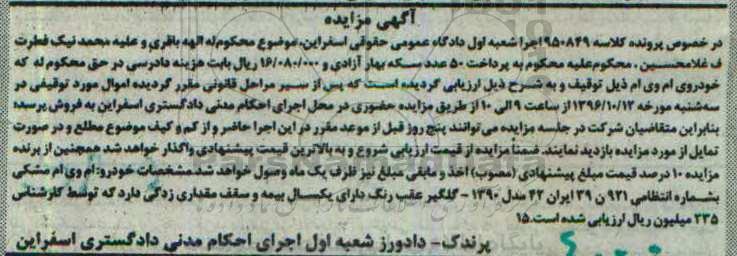 آگهی مزایده
در خصوص پرونده کلاسه ۹۵۰۸۴۹ اجرا شعبه اول دادگاه عمومی حقوقی اسفراین، موضوع محکوم‌له الهه باقری و علیه محمد نیک فطرت
ف غلامحسین ، محکوم‌علیه محکوم به پرداخت ۵۰ عدد سکه بهار آزادی و ۱۶/۰۸۰/۰۰۰ ریال بابت هزینه دادرسی در حق محکوم له که
خودروی ام وی ام ذیل توقیف و به شرح ذیل ارزیابی گردیده است که پس از سیر مراحل قانونی مقرر گردیده اموال مورد توقیفی در
سه‌شنبه مورخه ۱۳۹۶/۱۰/۱۲ از ساعت ۹ الی ۱۰ از طریق مزایده حضوری در محل اجرای احکام مدنی دادگستری اسفراین به فروش برسد؛
بنابراین متقاضیان شرکت در جلسه مزایده می‌توانند پنج روز قبل از موعد مقرر در این اجرا حاضر و از کم و کیف موضوع مطلع و در صورت
تمایل از مورد مزایده بازدید نمایند. ضمناً مزایده از قیمت ارزیابی شروع و به بالاترین قیمت پیشنهادی واگذار خواهد شد همچنین از برنده
مزایده ۱۰ درصد قیمت مبلغ پیشنهادی (مصوب) اخذ و مابقی مبلغ نیز ظرف یک ماه وصول خواهد شد.مشخصات خودرو: ام وی ام مشکی
بشماره انتظامی ۹۲۱ ن ۳۹ ایران ۴۲ مدل ۱۳۹۰ - گلگیر عقب رنگ دارای یکسال بیمه و سقف مقداری زدگی دارد که توسط کارشناس
۲۳۵ میلیون ریال ارزیابی شده است.۱۵
پرندک- دادورز شعبه اول اجرای احکام مدنی دادگستری اسفراین